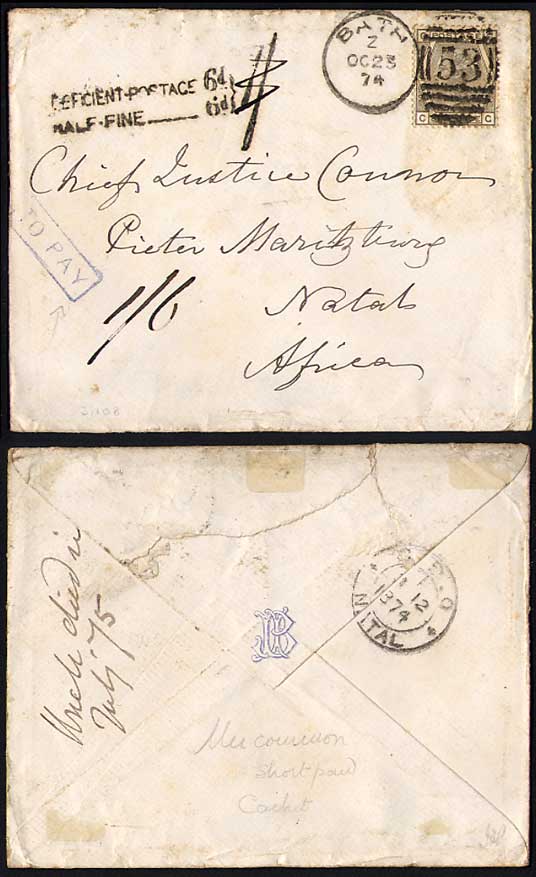 DEFICIENT-POSTAGE 6d
HALF-FINE 6d
BATH
Z
OC 23
74
53
C G
Chief Justice Connor
Pieter Maritzburg
Natal
Africa
TO PAY
1/6
Uncle died in
July '75
G.P.O
12
1874
NATAL
short paid
Cachet